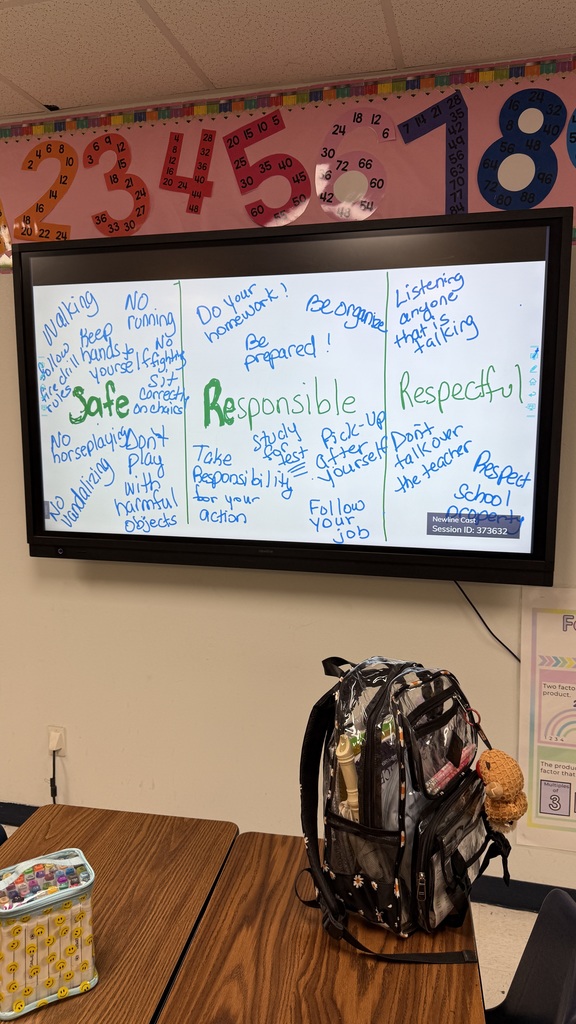 2 4 6 8
10
12
14
18 16
20 22 24
3 6 9 12
15
18 21
24
27
36 33 30
4 28
8 32
12 36
16 40
20 24 44
48
20 15 10 5
25
30 35 40
45
50
60 55
18 12 6
24
30
36 72 66
60
42 48 54
7 14 21 28
35
42
49
56
63
70
77
84
Walking
No running
Keep hands to yourself
No fighting
Follow fire drill rules
Sit correctly on chairs
Safe
No horseplaying
Don't play with harmful objects
No vandalizing
Do your homework!
Be organize
Be prepared!
Responsible
Study for test
Pick-up after yourself
Take Responsibility for your action
Follow your job
Listening anyone that is talking
Respectful
Don't talk over the teacher
Respect school property
Newline Cast
Session ID: 373632
Two facto
product.
The produ
factor that
Multiples
of
3